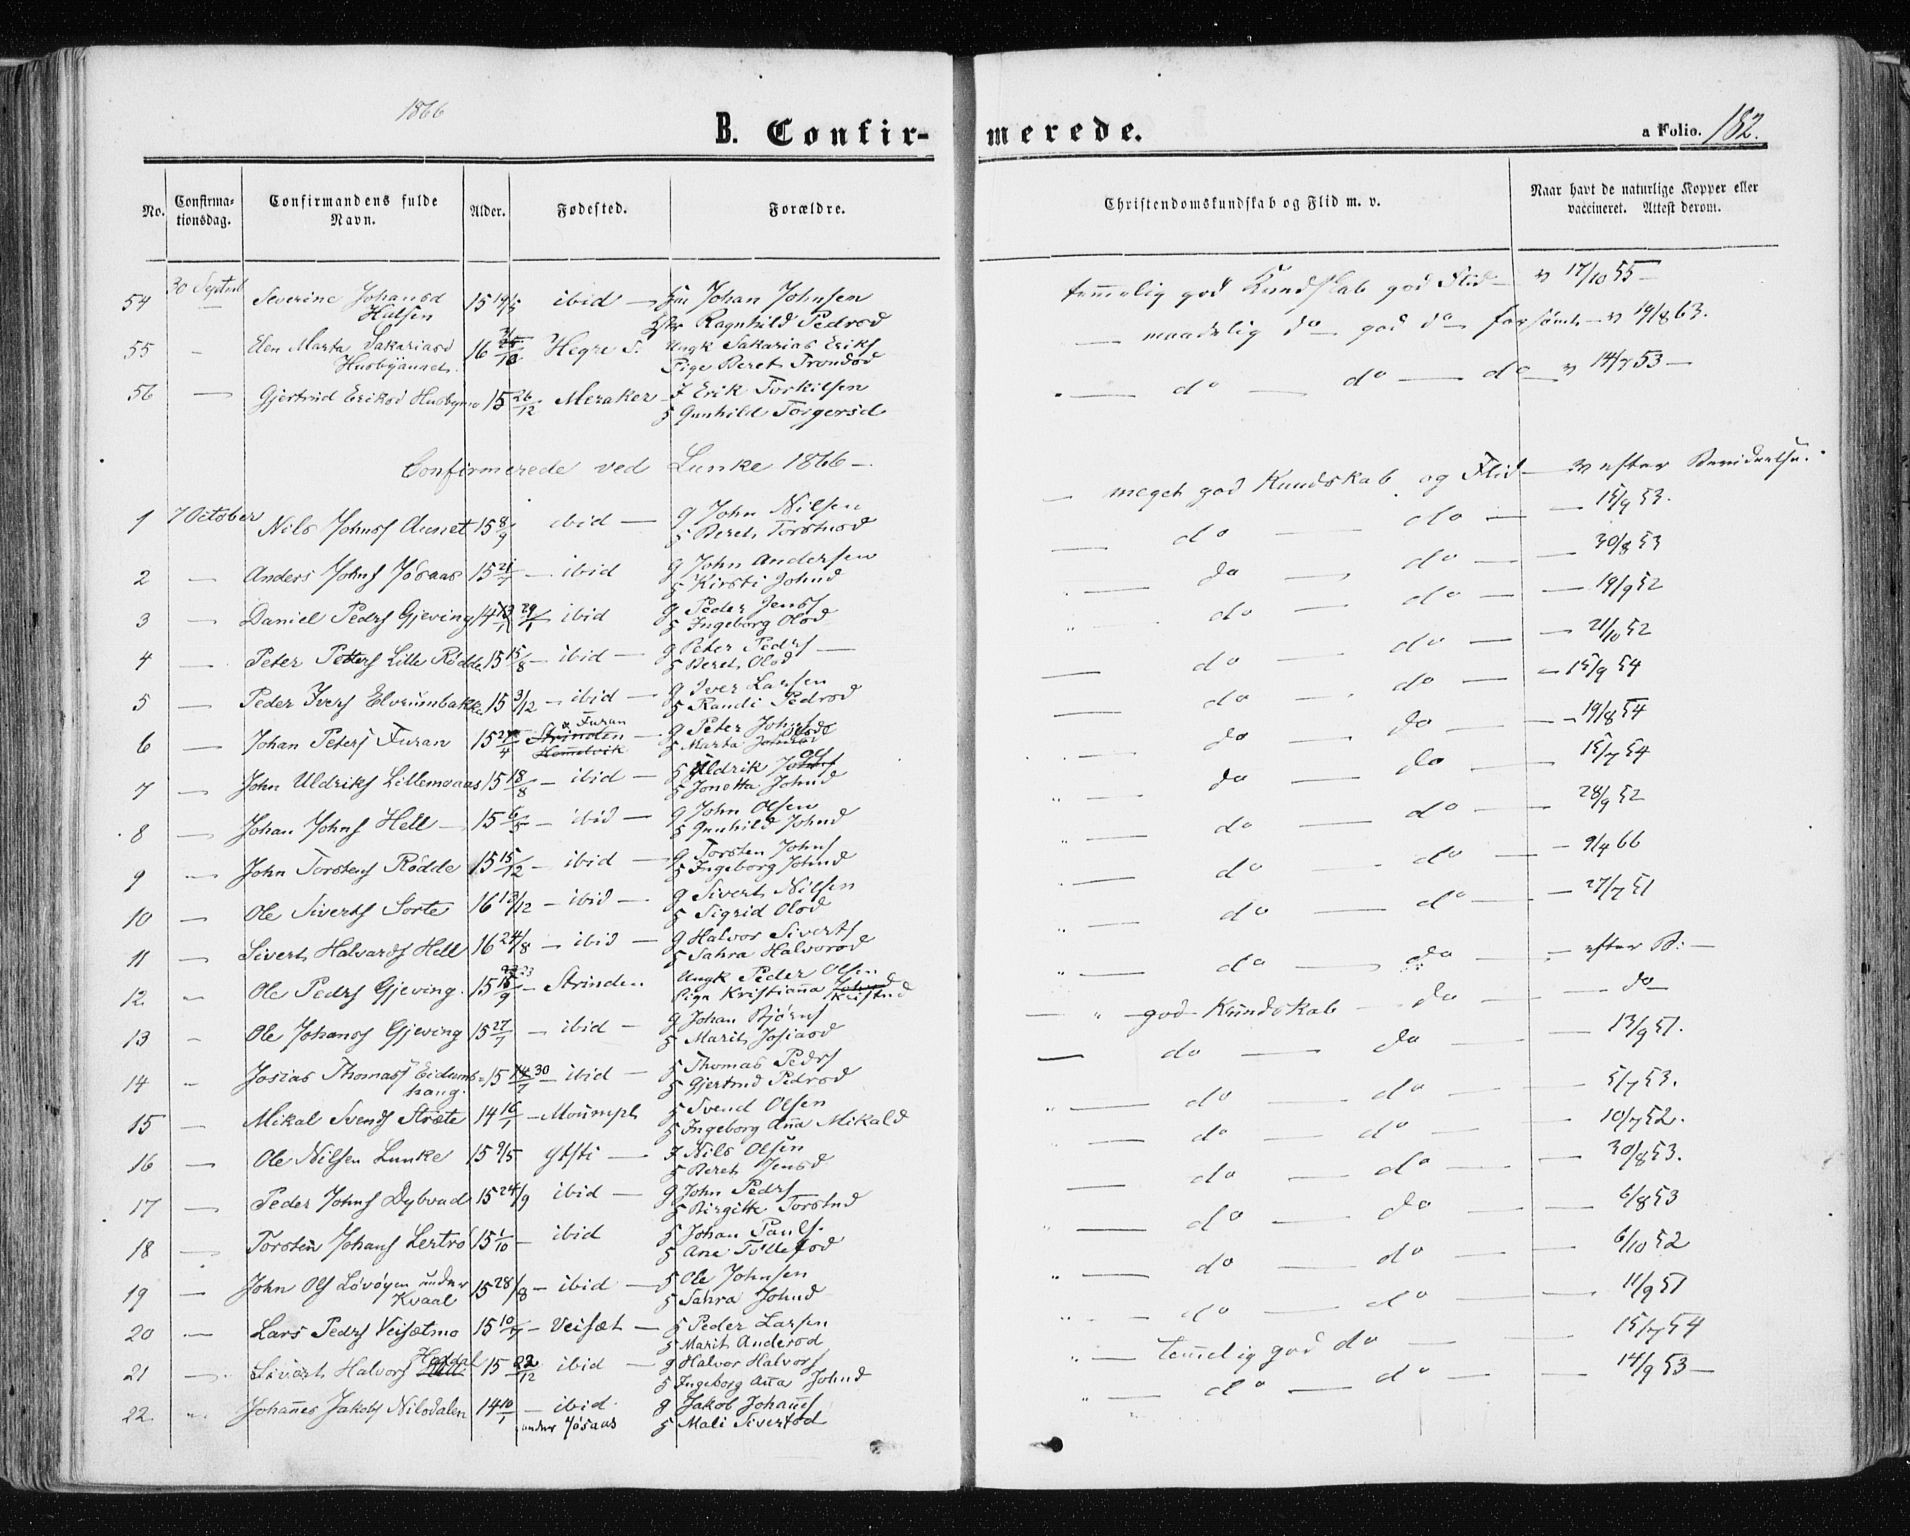 1866
B. Confirmerede.
a Folio. 182.
No. Confirmationsdag. Confirmandens fulde Navn. Alder. Fødested. Forældre. Christendomskundskab og Flid m. v. Naar havt de naturlige Kopper eller vaccineret. Attest derom.
54 30 Septbr Severine Johansd Halsen 15 ibid Johan Johnsen Ragnhild Pedrsd temmelig god Kundskab god Flid v 17/10 55
55 — Elen Marta Sakariasd Husbyaunet 16 Hegre Ungk Sakarias Eriks Pige Beret Trondsd maadelig do god do forsømt v 19/8 63.
56 — Gjertrud Eriksd Husbymo 15 26/12 Meraker Erik Torkilsen Gunhild Torgersd do do do v 14/7 53
Confirmerede ved Lunke 1866
1 7 October Nils Johns Aunet 15 8/9 ibid g John Nilsen Beret Torstnsd meget god Kundskab og Flid v efter Berideelse. 15/9 53.
2 — Anders Johns Jøsaas 15 21/7 ibid g John Andersen Kirsti Johnsd do do 30/8 53
3 — Daniel Pedrs Gjeving 14 29/1 ibid g Peder Jens Ingeborg Olsd do do 19/9 52
4 — Peter Petters Lille Rødde 15 15/8 ibid g Peter Pedrs Beret Olsd do do 21/10 52
5 — Peder Ivers Elvrumbakke 15 3/12 ibid g Iver Larsen Randi Pedrsd do do 15/9 54
6 — Johan Peters Furan 15 Strinden Furan Hommelvik g Peter Johns Marta do do 19/8 54
7 — John Uldriks Lillemoaas 15 18/8 ibid Uldrik Ols Jonetta Johnsd do do 15/7 54
8 — Johan Johns Hell 15 6/5 ibid g John Olsen Gunhild Johnsd do do 28/9 52
9 — John Torstens Rødde 15 15/12 ibid g Torsten Johns Ingeborg Johnsd do do 9/4 66
10 — Ole Siverts Sorte 16 13/12 ibid g Sivert Nilsen Sigrid Olsd do do 27/7 51
11 — Sivert Halvards Hell 16 24/8 ibid g Halvor Siverts Sahra Halvorsd do do efter B:
12 Ole Pedrs Gjeving 15 Strinden Ungk Peder Olsen Pige Kristianna god Kundskab do do
13 Ole Johans Gjeving 15 27/7 ibid g Johan Bjørns Marit Josiasd do do 13/9 51.
14 Josias Thomass Eidumshaug 15 30 ibid Thomas Pedrs Gjertrud Pedrsd do do 5/7 53.
15 Mikal Svends Stræte 14 16/7 Svend Olsen Ingeborg Anna Mikalsd do do 10/7 52.
16 — Ole Nilsen Lunke 15 9/5 Nils Olsen Beret Jensd do do 30/8 53.
17 — Peder Johns Dybvad 15 24/9 ibid g John Pedrs Birgitte Torstnsd do do 6/8 53
18 — Torsten Johans Lertrø 15 1/10 ibid Johan Pauls. Ane do do 6/10 52
19 — John Ols Løvøyen under Kvaal 15 28/8 ibid Ole Johnsen Sahra Johnsd do do 11/9 51
20 — Lars Pedrs Veisætmo 15 10/7 Veisæt Peder Larsen Marit Andersd temmelig god do 15/7 54
21 — Sivert Halvors Hell 15 22/12 ibid g Halvor Halvors Ingeborg Anna Johnsd do do 14/9 53
22. Johannes Jakobs Nilsdalen 14 10/1 ibid under Jøsaas g Jakob Johanns Mali Sivertsd